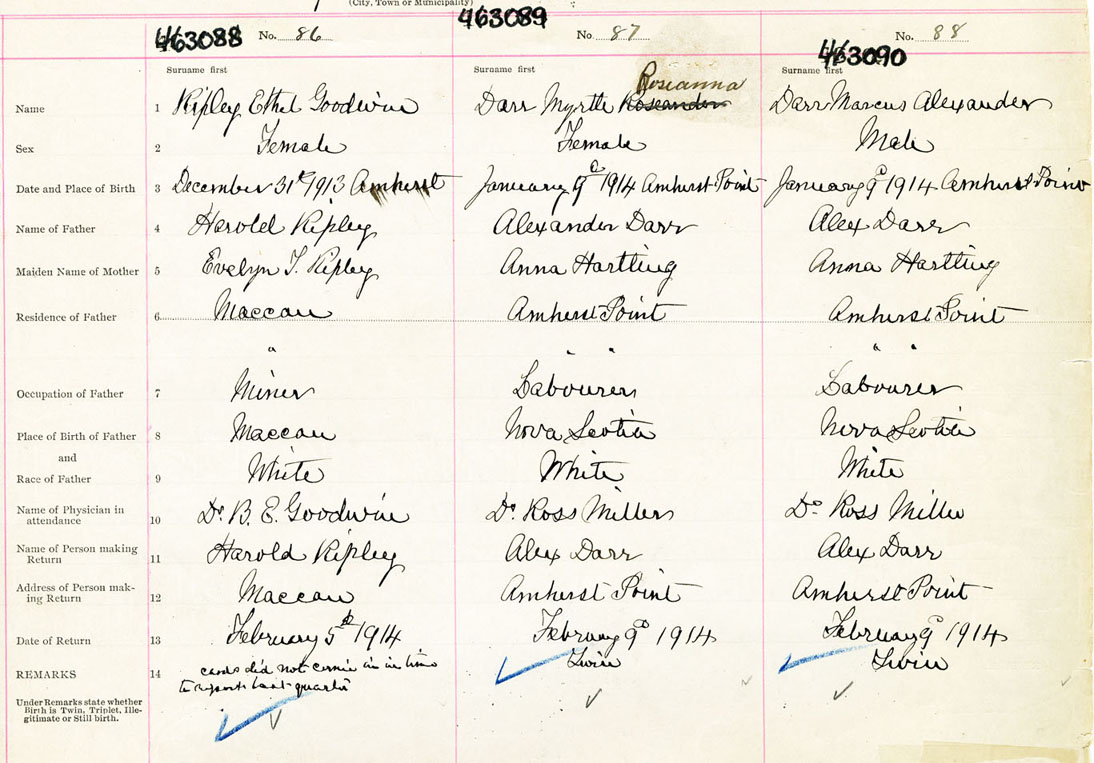 (City, Town or Municipality)
463088 No. 86 463089 No 87 463090 No. 88
Surname first Surname first Surname first
Name 1 Ripley Ethel Goodwin Darr Myrtle Roseanna Darr Marcus Alexander
Sex 2 Female Female Male
Date and Place of Birth 3 December 31st 1913 Amherst January 9th 1914 Amherst Point January 9th 1914 Amherst Point
Name of Father 4 Harold Ripley Alexander Darr Alex Darr
Maiden Name of Mother 5 Evelyn T. Ripley Anna Hartling Anna Hartling
Residence of Father 6 Maccan Amherst Point Amherst Point
" " " " "
Occupation of Father 7 Miner Labourer Labourer
Place of Birth of Father 8 Maccan Nova Scotia Nova Scotia
and
Race of Father 9 White White White
Name of Physician in
attendance 10 Dr. B. E. Goodwin Dr Ross Miller Dr. Ross Miller
Name of Person making
Return 11 Harold Ripley Alex Darr Alex Darr
Address of Person mak-
ing Return 12 Maccan Amherst Point Amherst Point
Date of Return 13 February 5th 1914 February 9th 1914 February 9th 1914
REMARKS 14 cards did not come in in time Twin Twin
to report last quarter
Under Remarks state whether
Birth is Twin, Triplet, Ille-
gitimate or Still birth.